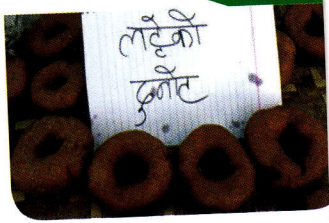 लट्टेको
डुनोट